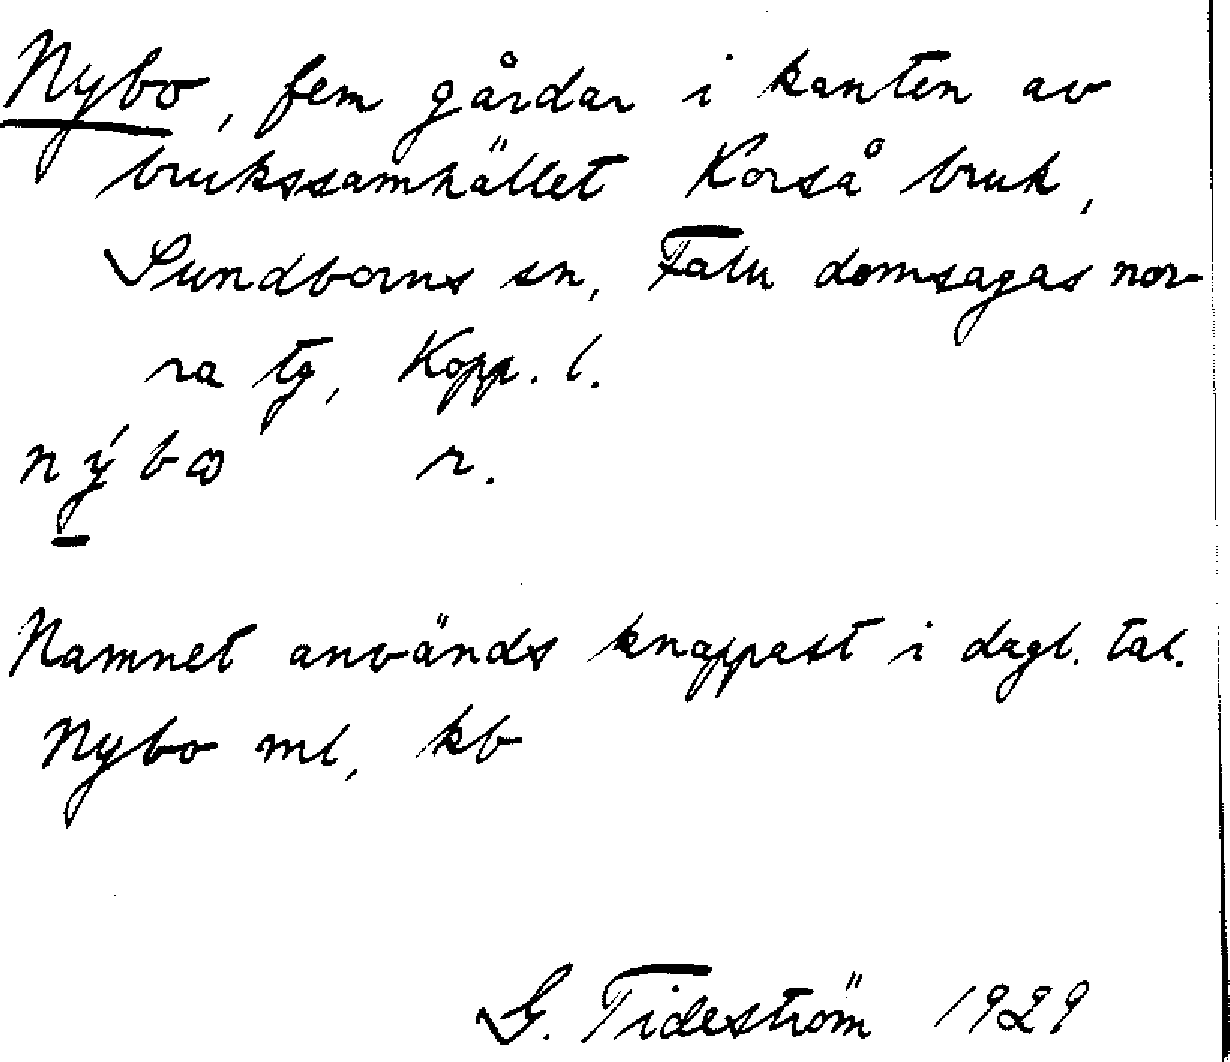 Nybo, fem gårdar i kanten av
brukssamhället Korså bruk,
Sundborns sn, Falu domsagas nor-
ra tg, Kopp. l.
nýbꞷ r.
Namnet används knappast i dagl. tal.
Nybo ml, kb
G. Tideström 1929